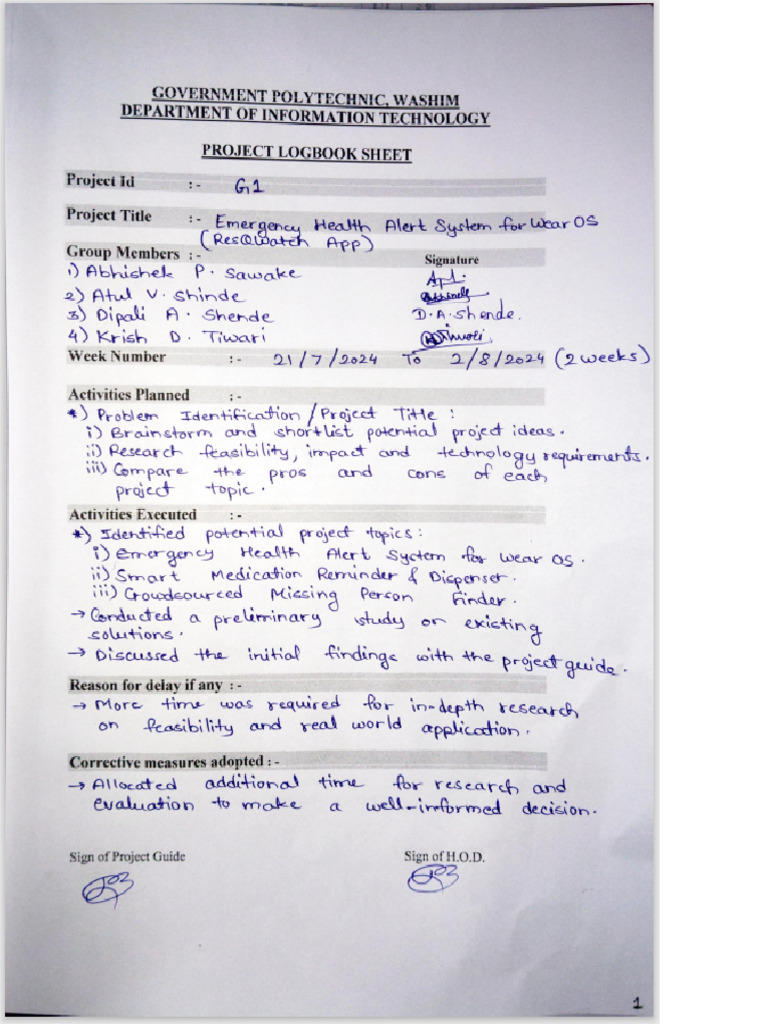 GOVERNMENT POLYTECHNIC, WASHIM
DEPARTMENT OF INFORMATION TECHNOLOGY
PROJECT LOGBOOK SHEET
Project Id :- G1
Project Title :- Emergency Health Alert System for Wear OS
(ResQWatch App)
Group Members :- Signature
1) Abhishek P. Sawake
2) Atul V. Shinde
3) Dipali A. Shende D.A.Shende.
4) Krish D. Tiwari
Week Number :- 21/7/2024 To 2/8/2024 (2 weeks)
Activities Planned :-
*) Problem Identification/Project Title :
i) Brainstorm and shortlist potential project ideas.
ii) Research feasibility, impact and technology requirements.
iii) Compare the pros and cons of each
project topic.
Activities Executed :-
*) Identified potential project topics :
i) Emergency Health Alert System for Wear OS.
ii) Smart Medication Reminder & Dispenser.
iii) Crowdsourced Missing Person Finder.
→ Conducted a preliminary study on existing
solutions.
→ Discussed the initial findings with the project guide.
Reason for delay if any :-
→ More time was required for in-depth research
on feasibility and real world application.
Corrective measures adopted :-
→ Allocated additional time for research and
evaluation to make a well-informed decision.
Sign of Project Guide Sign of H.O.D.
1